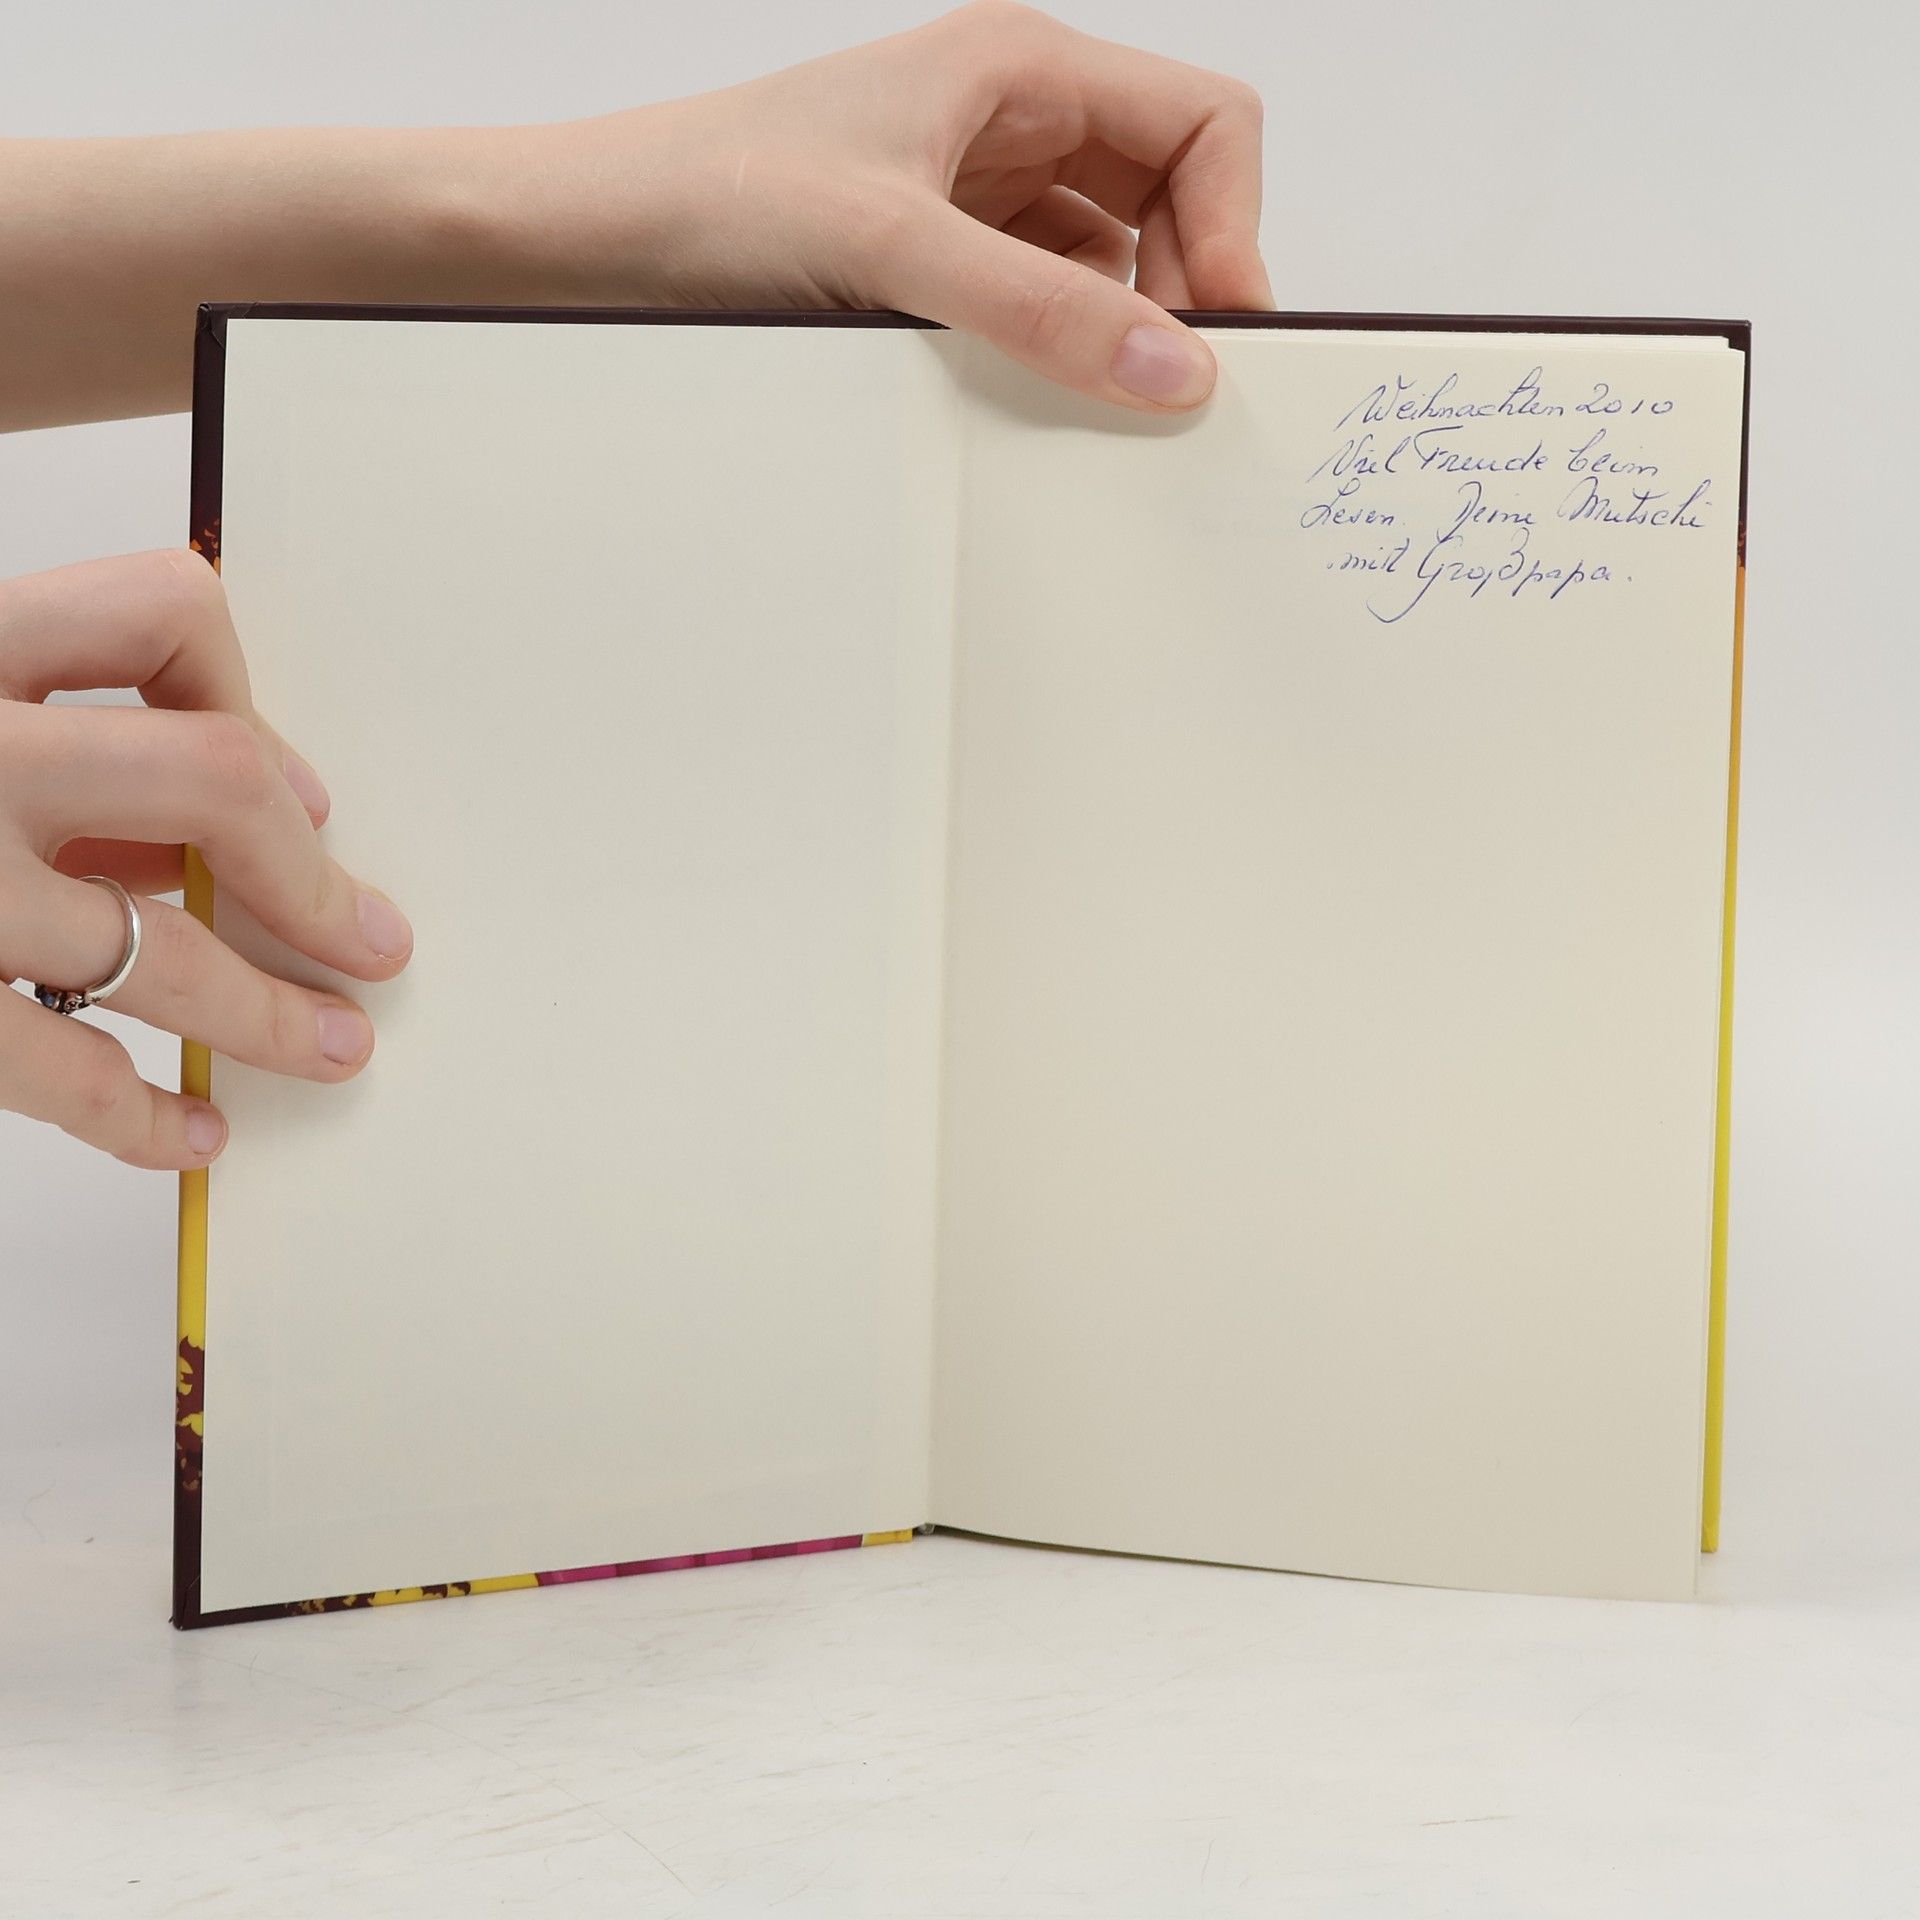 Weihnachten 2010
Viel Freude beim
Lesen. Deine Mutschi
mit Großpapa.